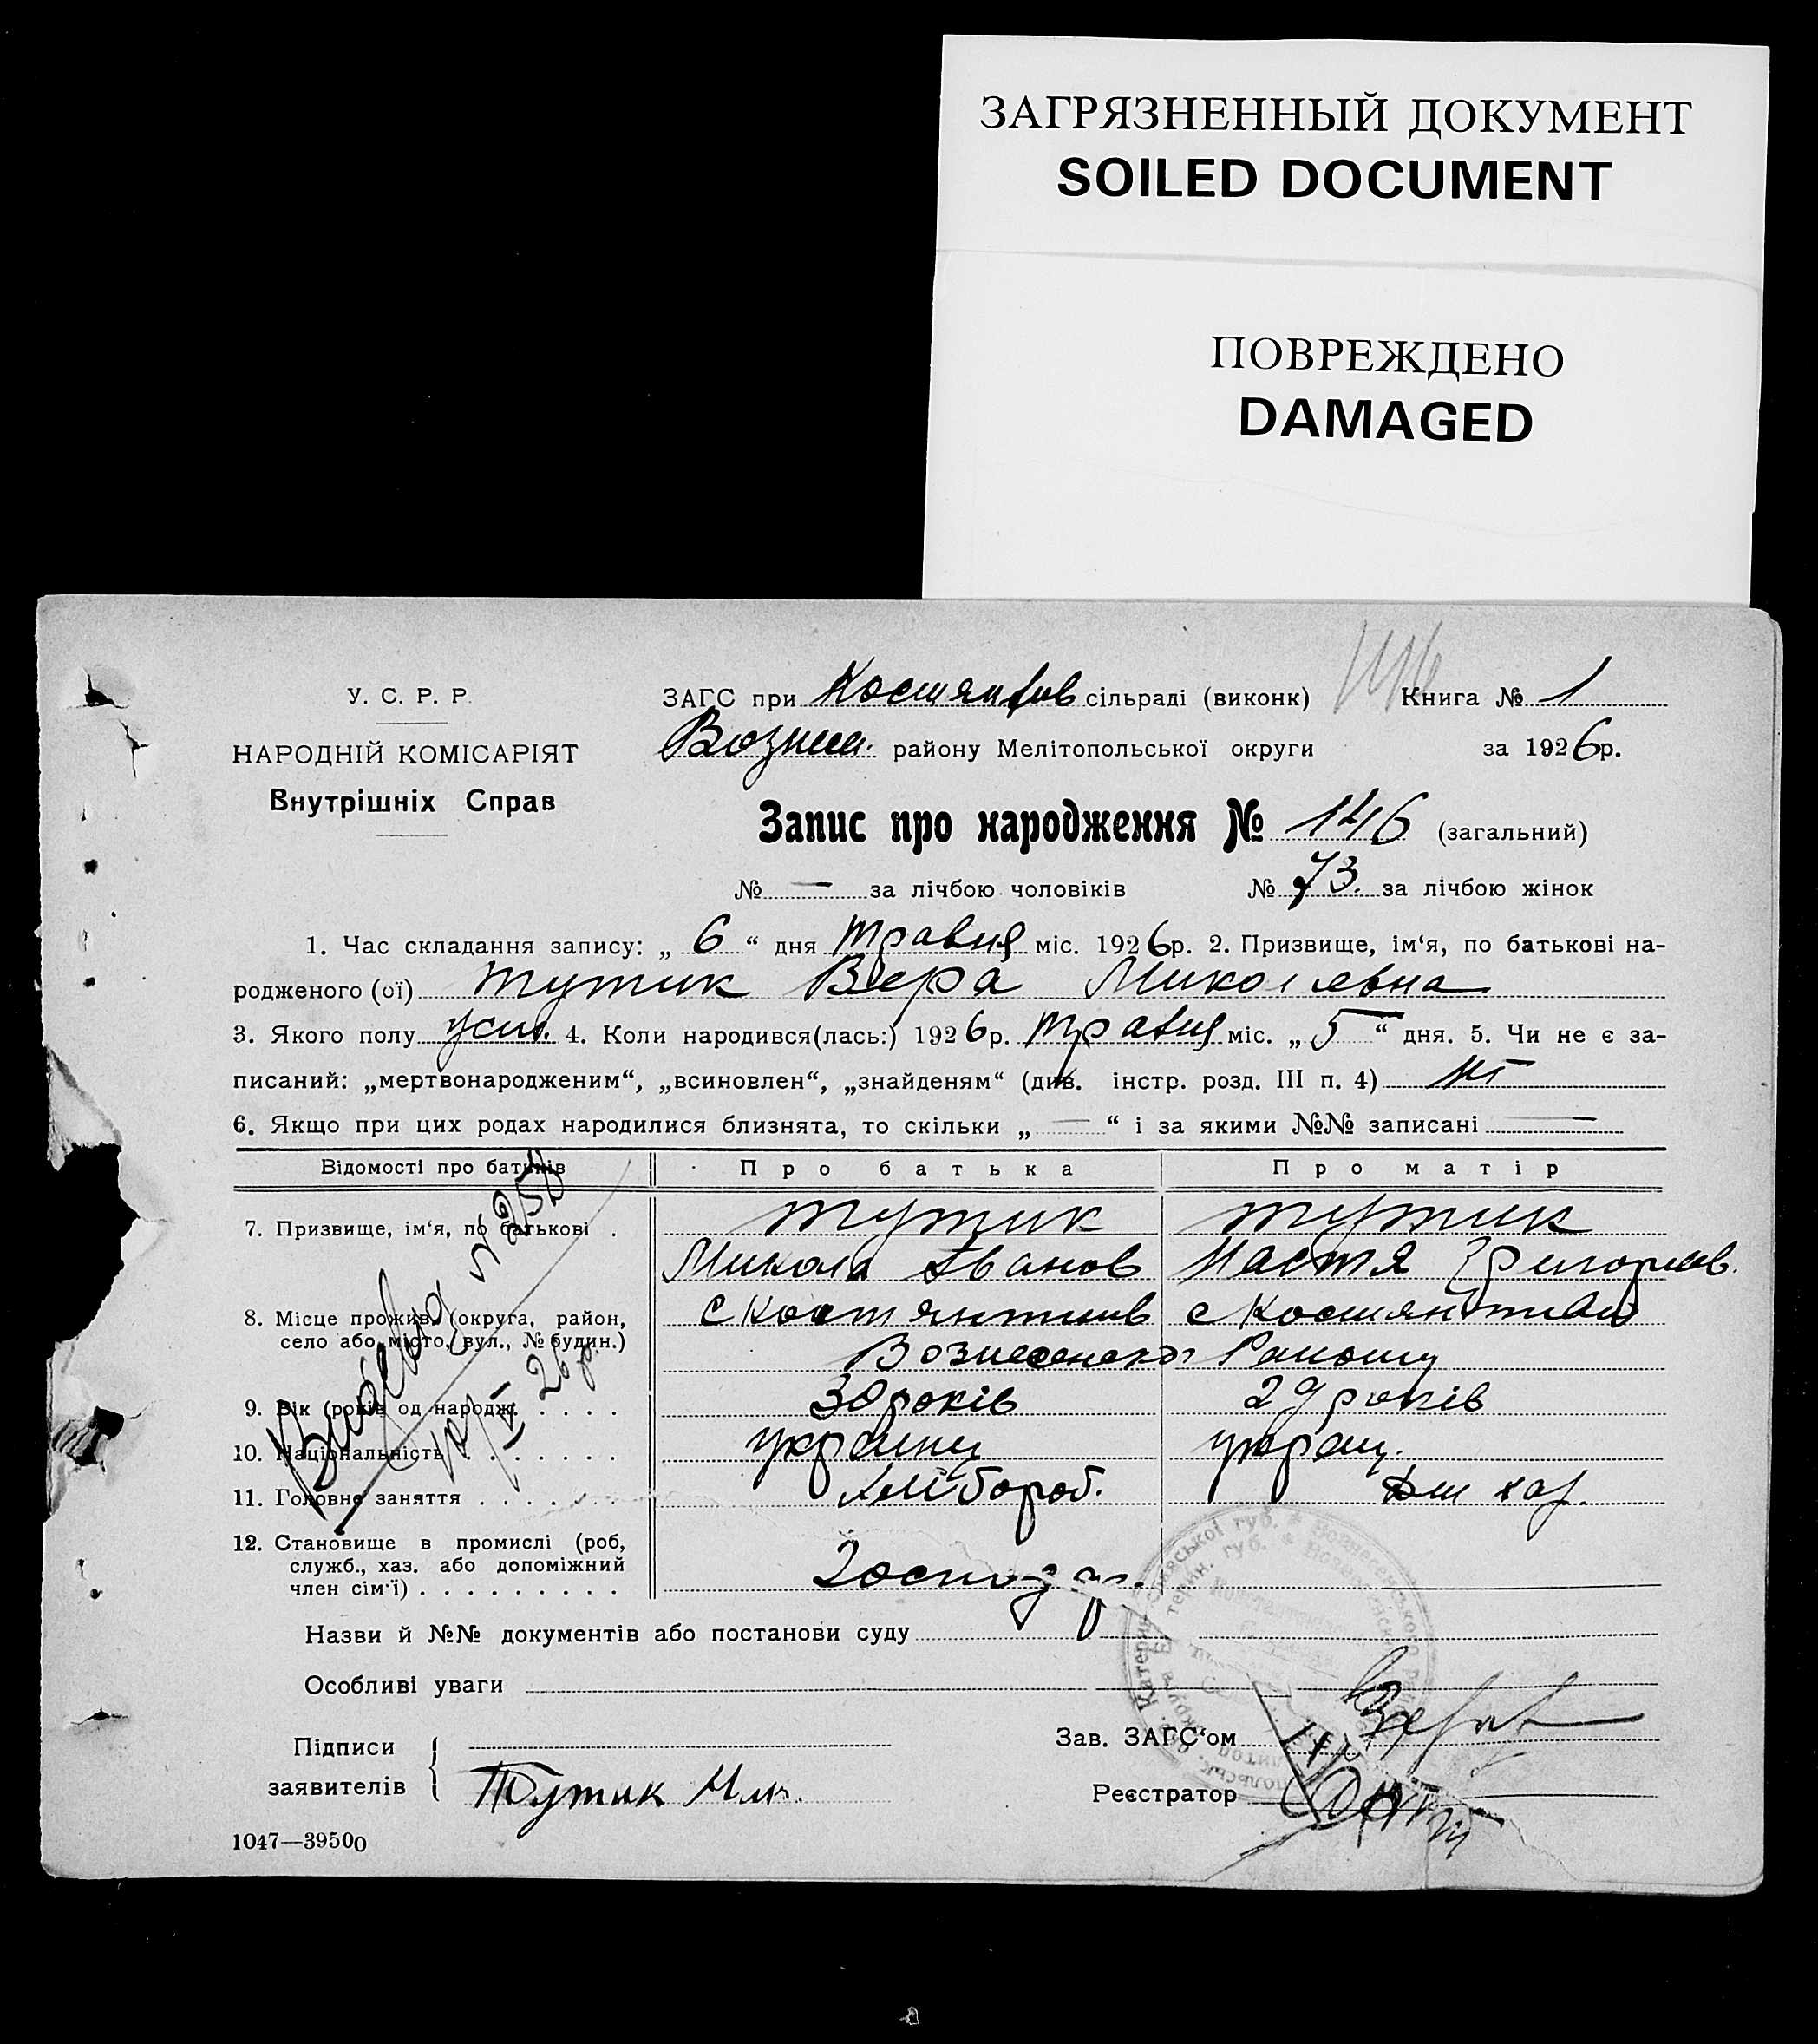 ЗАГРЯЗНЕННЫЙ ДОКУМЕНТ
SOILED DOCUMENT
ПОВРЕЖДЕНО
DAMAGED
У. С. Р. Р.
НАРОДНІЙ КОМІСАРІЯТ
Внутрішніх Справ
ЗАГС при Костянтив сільраді (виконк) Книга № 1
Вознес. району Мелітопольської округи за 1926р.
Запис про народження № 146 (загальний)
№ — за лічбою чоловіків № 73. за лічбою жінок
1. Час складання запису: „ 6 “ дня травня міс. 1926р. 2. Призвище, ім‘я, по батькові на-
родженого (ої) Тутик Вера Миколаевна
3. Якого полу 4. Коли народився(лась:) 1926р. травня міс. „ 5 “ дня. 5. Чи не є за-
писаний: „мертвонародженим“, „всиновлен“, „знайденям“ (див. інстр. розд. III п. 4) ні
6. Якщо при цих родах народилися близнята, то скільки „ — “ і за якими №№ записані —
Відомості про батьків Про батька Про матір
7. Призвище, ім‘я, по батькові . Тутик Тутик
Микола Іванов Настя Григоріев.
8. Місце прожив. (округа, район, с Костянтинів с Костянтинів
село або місто, вул., № будин.) Вознесенськ Району
9. Вік (років од народж. . . . . 30 років 29 років
10. Національність . . . . . . . українц украц.
11. Головне заняття . . . . . . . хліббороб. Дом хаз.
12. Становище в промислі (роб,
служб., хаз. або допоміжний
член сім‘ї) . . . . . . . . . Господар.
Видана № 258
26 р.
Назви й №№ документів або постанови суду
Особливі уваги
Підписи
заявителів Тутик Мик.
Зав. ЗАГС‘ом
Реєстратор
1047—39500